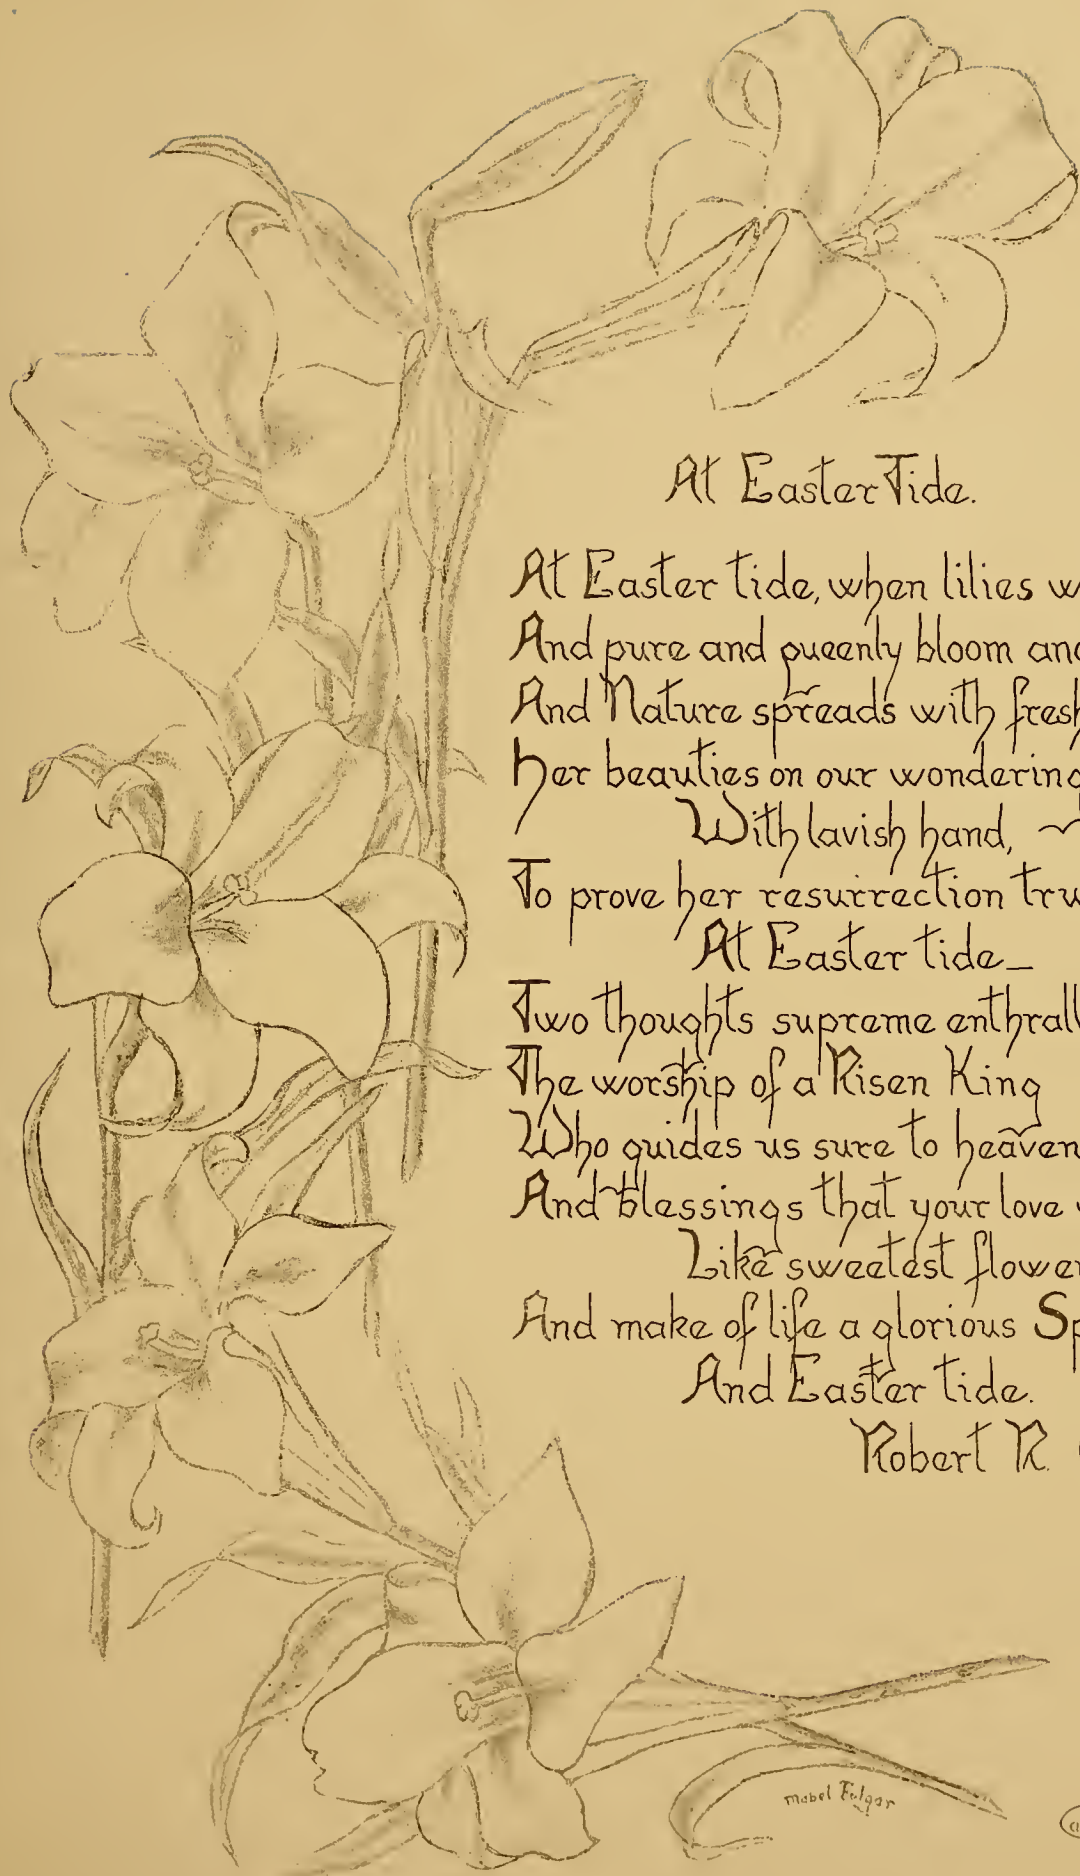 At Easter Tide.
At Easter tide, when lilies
And pure and queenly bloom
And Nature spreads with
Her beauties on our
With lavish hand,
To prove her resurrection
At Easter tide—
Two thoughts supreme
The worship of a Risen King
Who guides us sure to
And blessings that your love
Like sweetest
And make of life a glorious
And Easter tide.
Robert R.
Mabel Fulgar